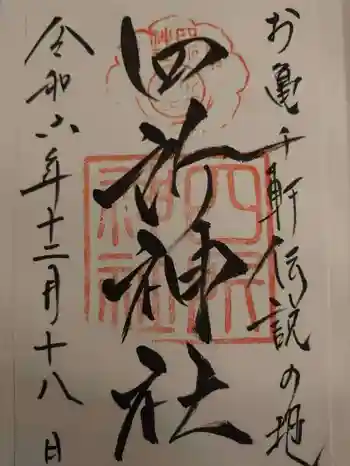 お亀千軒伝説の地
四所神社
令和六年十二月十八日
四所神社